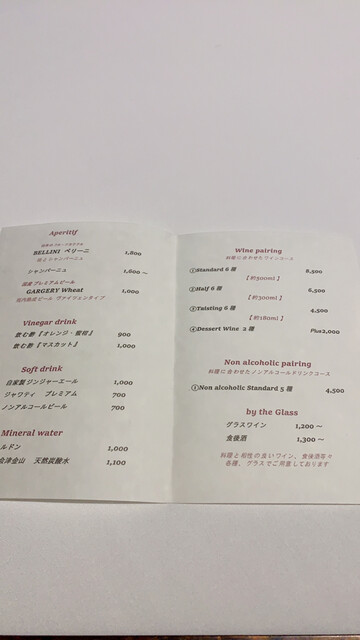 Aperitif
BELLINI ベリーニ 1,800
桃とシャンパーニュ
シャンパーニュ 1,600 〜
国産プレミアムビール
GARGERY Wheat 1,000
国内熟成ビール ヴァイツェンタイプ
Vinegar drink
飲む酢『オレンジ・蜜柑』 900
飲む酢『マスカット』 1,000
Soft drink
自家製ジンジャーエール 1,000
ジャワティ プレミアム 700
ノンアルコールビール 700
Mineral water
ルドン 1,000
会津金山 天然炭酸水 1,100
Wine pairing
料理に合わせたワインコース
①Standard 6 種 8,500
【約500ml】
②Half 6 種 6,500
【約300ml】
③Taisting 6 種 4,500
【約180ml】
④Dessert Wine 2 種 Plus2,000
Non alcoholic pairing
料理に合わせたノンアルコールドリンクコース
Non alcoholic Standard 5 種 4,500
by the Glass
グラスワイン 1,200 〜
食後酒 1,300 〜
料理と相性の良いワイン、食後酒等々
各種、グラスでご用意しております